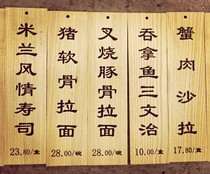 米兰风情寿司
23.80/盒
猪软骨拉面
28.00/碗
叉烧豚骨拉面
28.00/碗
吞拿鱼三文治
10.00/盒
蟹肉沙拉
17.80/盒